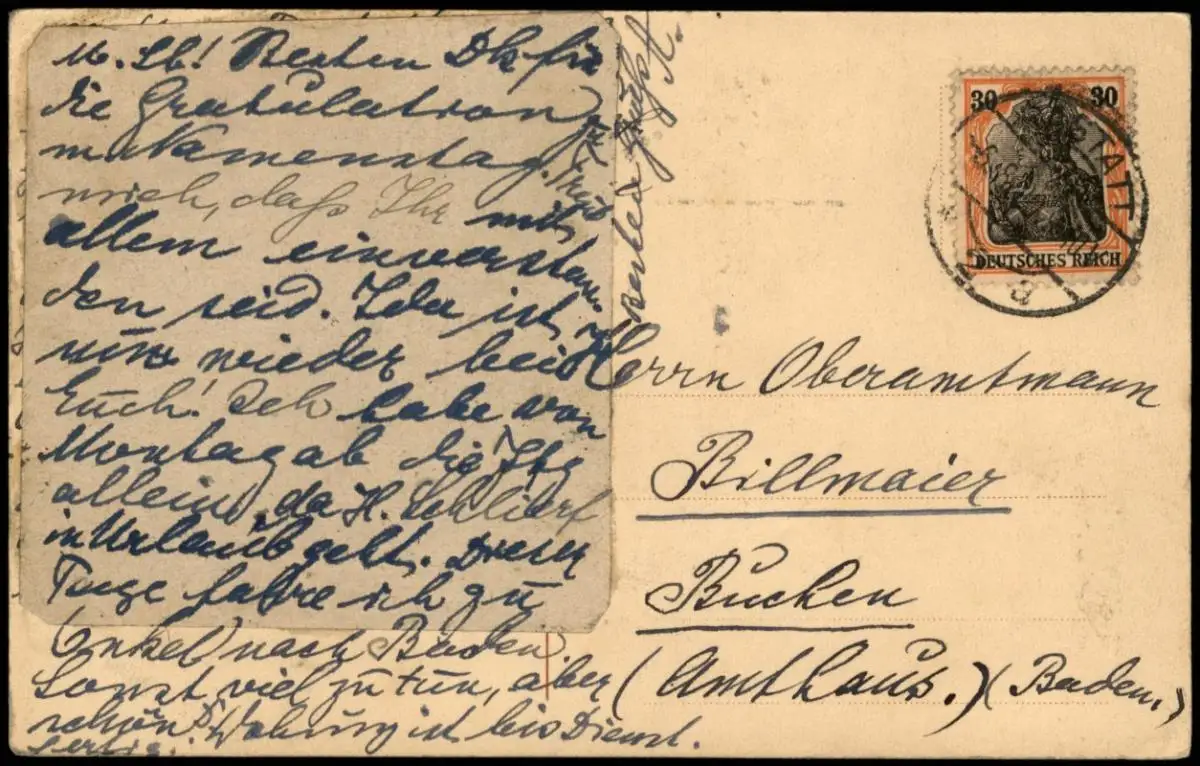 M. Lb! Besten Dk für
die Gratulation
m. Namenstag. Freut
mich, daß Ihr mit
allem einverstan-
den seid. Ida ist
nun wieder bei
Euch! Ich habe von
Montag ab die Ztg
allein, da H. Schlierf
in Urlaub geht. Dieser
Tage fahre ich zu
Onkel nach Baden.
Sonst viel zu tun, aber
schön. Wohnung ist bis Dienst.
fertig.
Beste Grüße A.
30 30
DEUTSCHES REICH
STATT
a
Herrn Oberamtmann
Billmaier
Buchen
(Amthaus.) (Baden.)